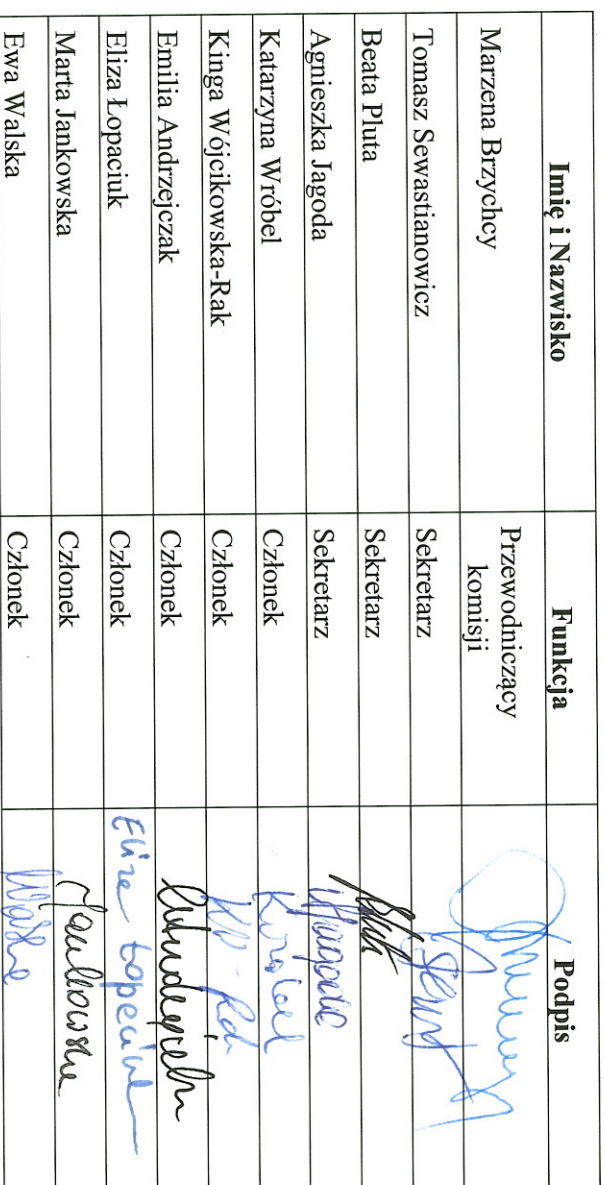 Imię i Nazwisko Funkcja Podpis
Marzena Brzychcy Przewodniczący
komisji
Tomasz Sewastianowicz Sekretarz
Beata Pluta Sekretarz
Agnieszka Jagoda Sekretarz
Katarzyna Wróbel Członek
Kinga Wójcikowska-Rak Członek
Emilia Andrzejczak Członek
Eliza Łopaciuk Członek Eliza Łopaciuk
Marta Jankowska Członek Jankowska
Ewa Walska Członek